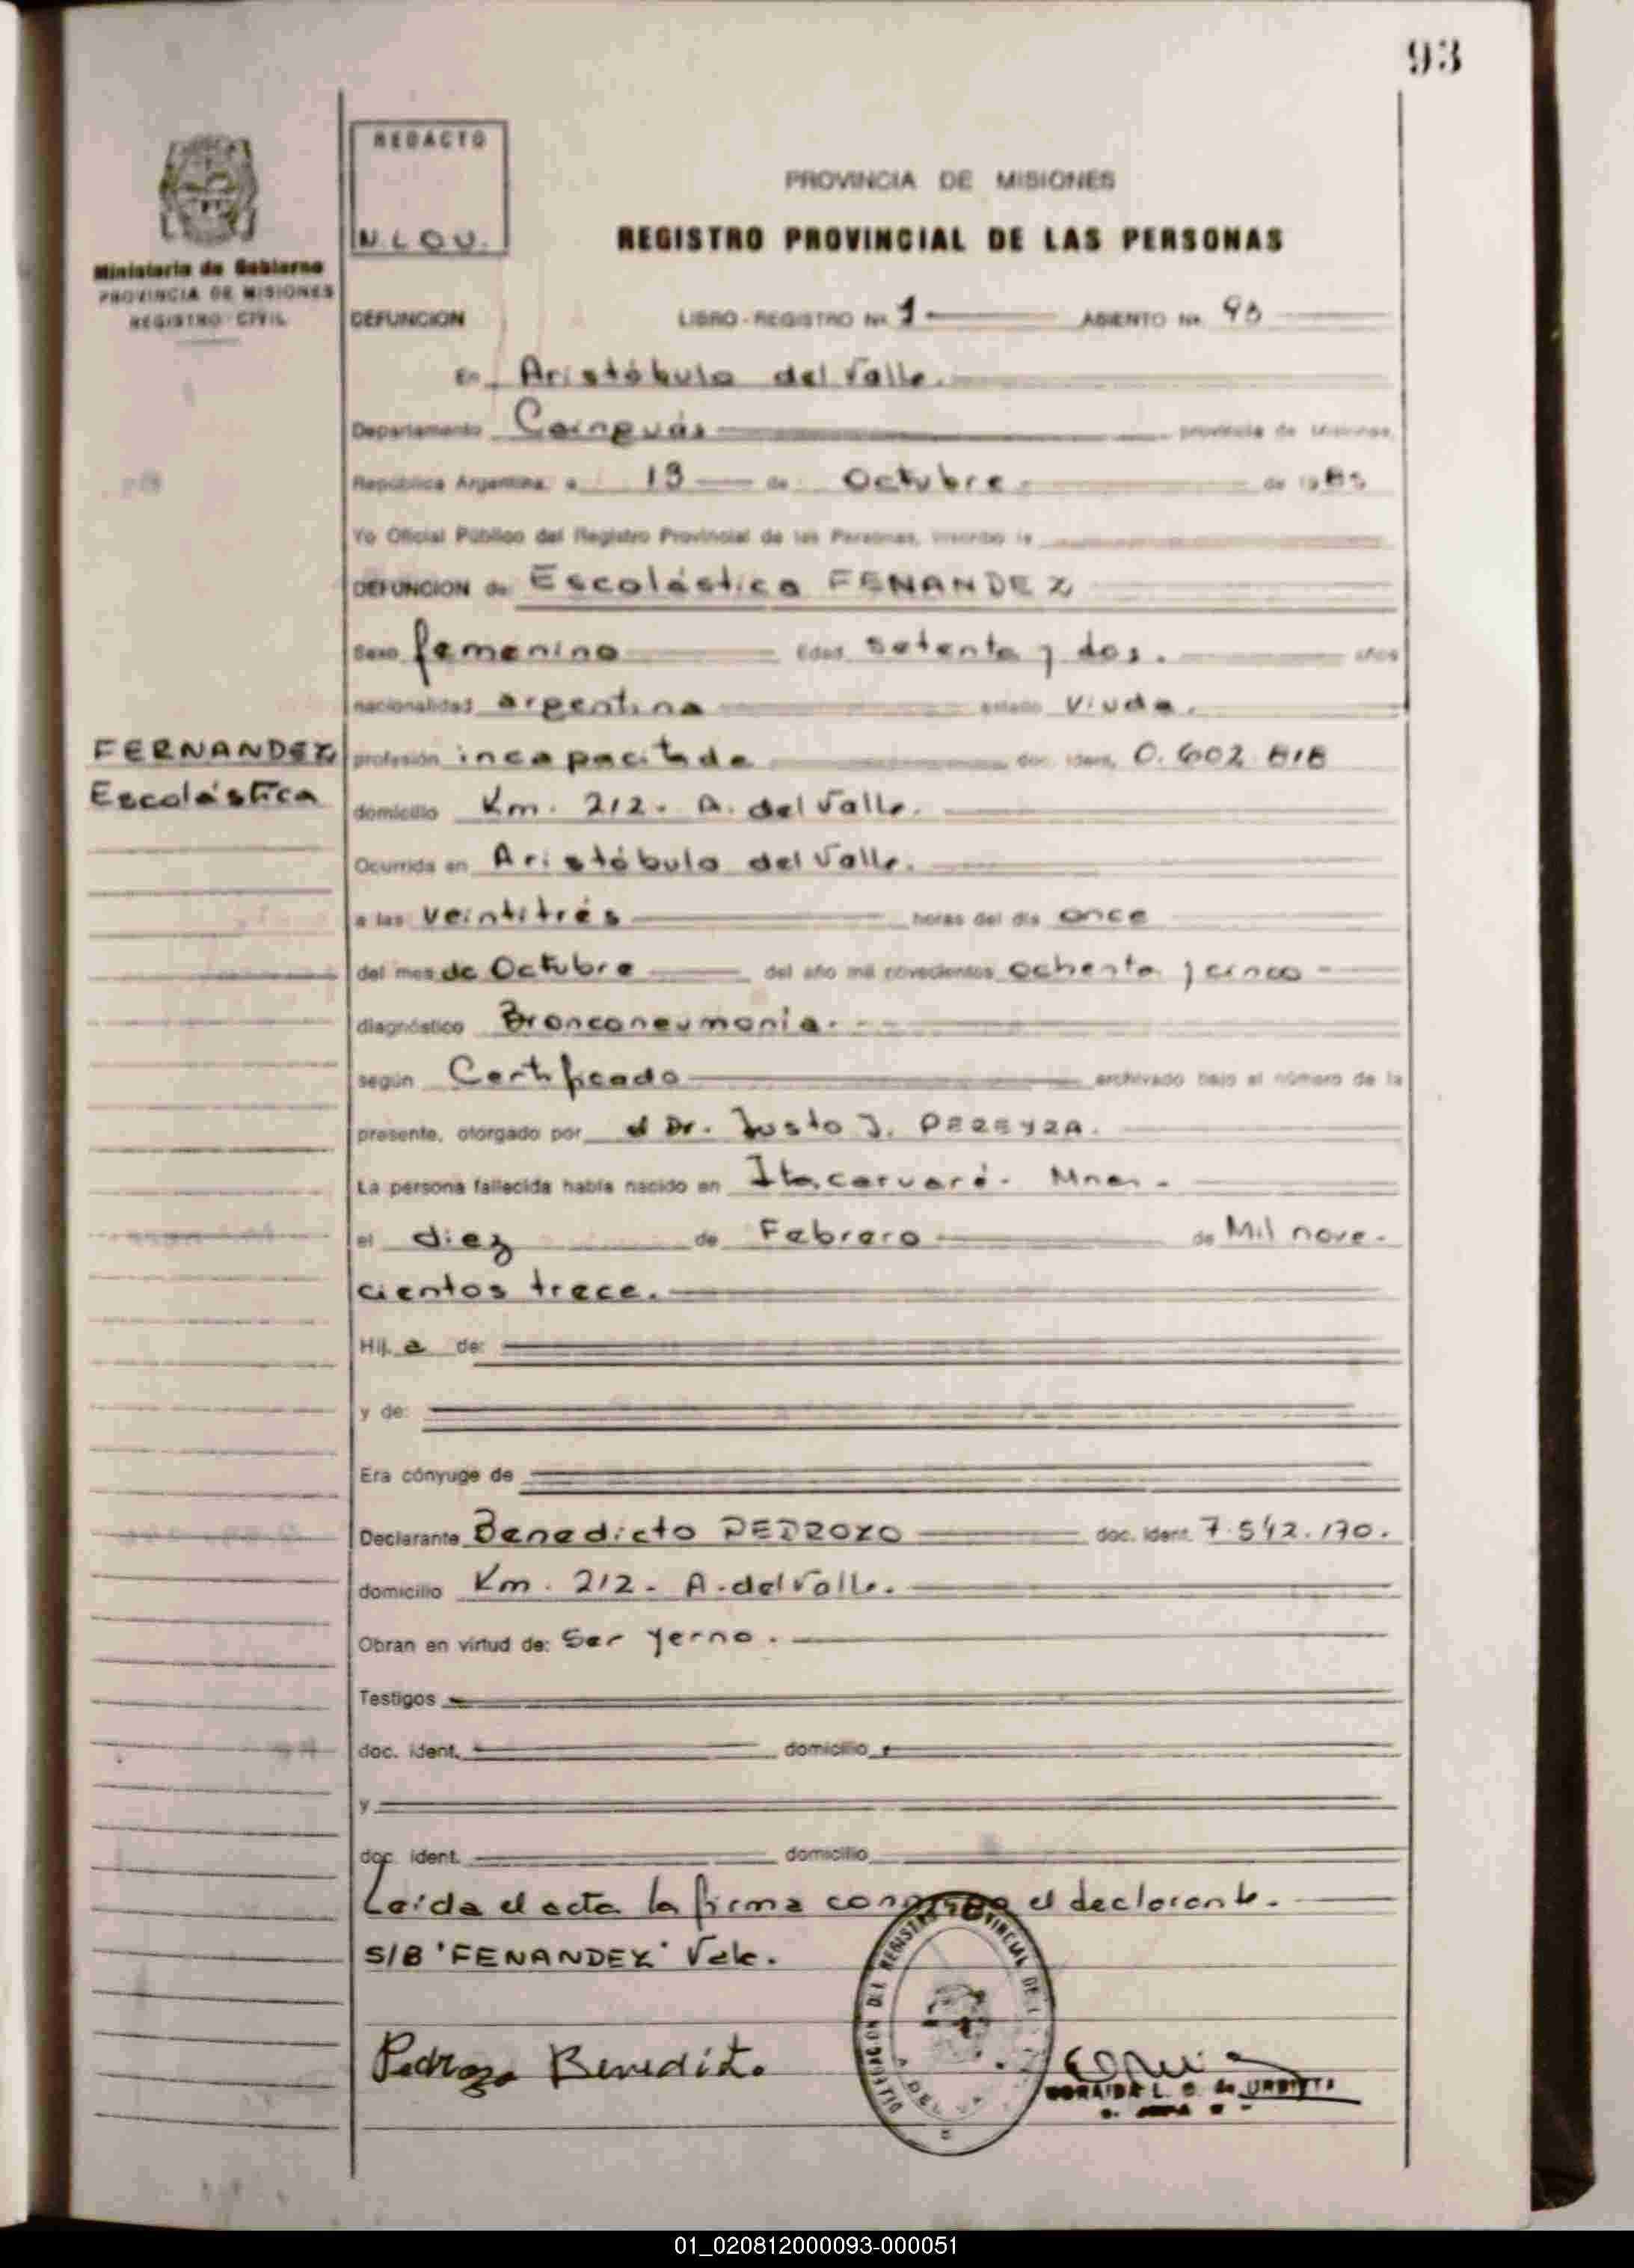 93
REDACTO
N L O U.
Ministerio de Gobierno
PROVINCIA DE MISIONES
REGISTRO CIVIL
PROVINCIA DE MISIONES
REGISTRO PROVINCIAL DE LAS PERSONAS
DEFUNCION LIBRO - REGISTRO Nº 1 ASIENTO Nº 93
En Aristóbulo del Valle.
Departamento Cainguás provincia de Misiones,
República Argentina, a 13 de Octubre de 1985
Yo Oficial Público del Registro Provincial de las Personas, inscribo la
DEFUNCION de Escolástica FENANDEZ
Sexo femenino Edad setenta y dos. años
nacionalidad argentina estado viuda.
FERNANDEZ
Escolástica
profesión incapacitada doc. ident. 0.602.818
domicilio Km. 212- A. del Valle.
Ocurrida en Aristóbulo del Valle.
a las veintitrés horas del día once
del mes de Octubre del año mil novecientos ochenta y cinco
diagnóstico Bronconeumonia.
según Certificado archivado bajo el número de la
presente, otorgado por el Dr. Justo J. PEREYRA.
La persona fallecida había nacido en Itacaruaré- Mnes.
el diez de Febrero de Mil nove-
cientos trece.
Hij a de:
y de:
Era cónyuge de
Declarante Benedicto PEDROZO doc. ident. 7.542.170.
domicilio Km. 212- A. del Valle.
Obran en virtud de: Ser yerno.
Testigos
doc. ident. domicilio
y
doc. ident. domicilio
Leída el acta la firma conmigo el declarante.
S/B "FENANDEZ" Vale.
Pedrozo Benedicto
DELEGACION DEL REGISTRO PROVINCIAL DE
DEL VA
L. de URBIETA
01_020812000093-000051